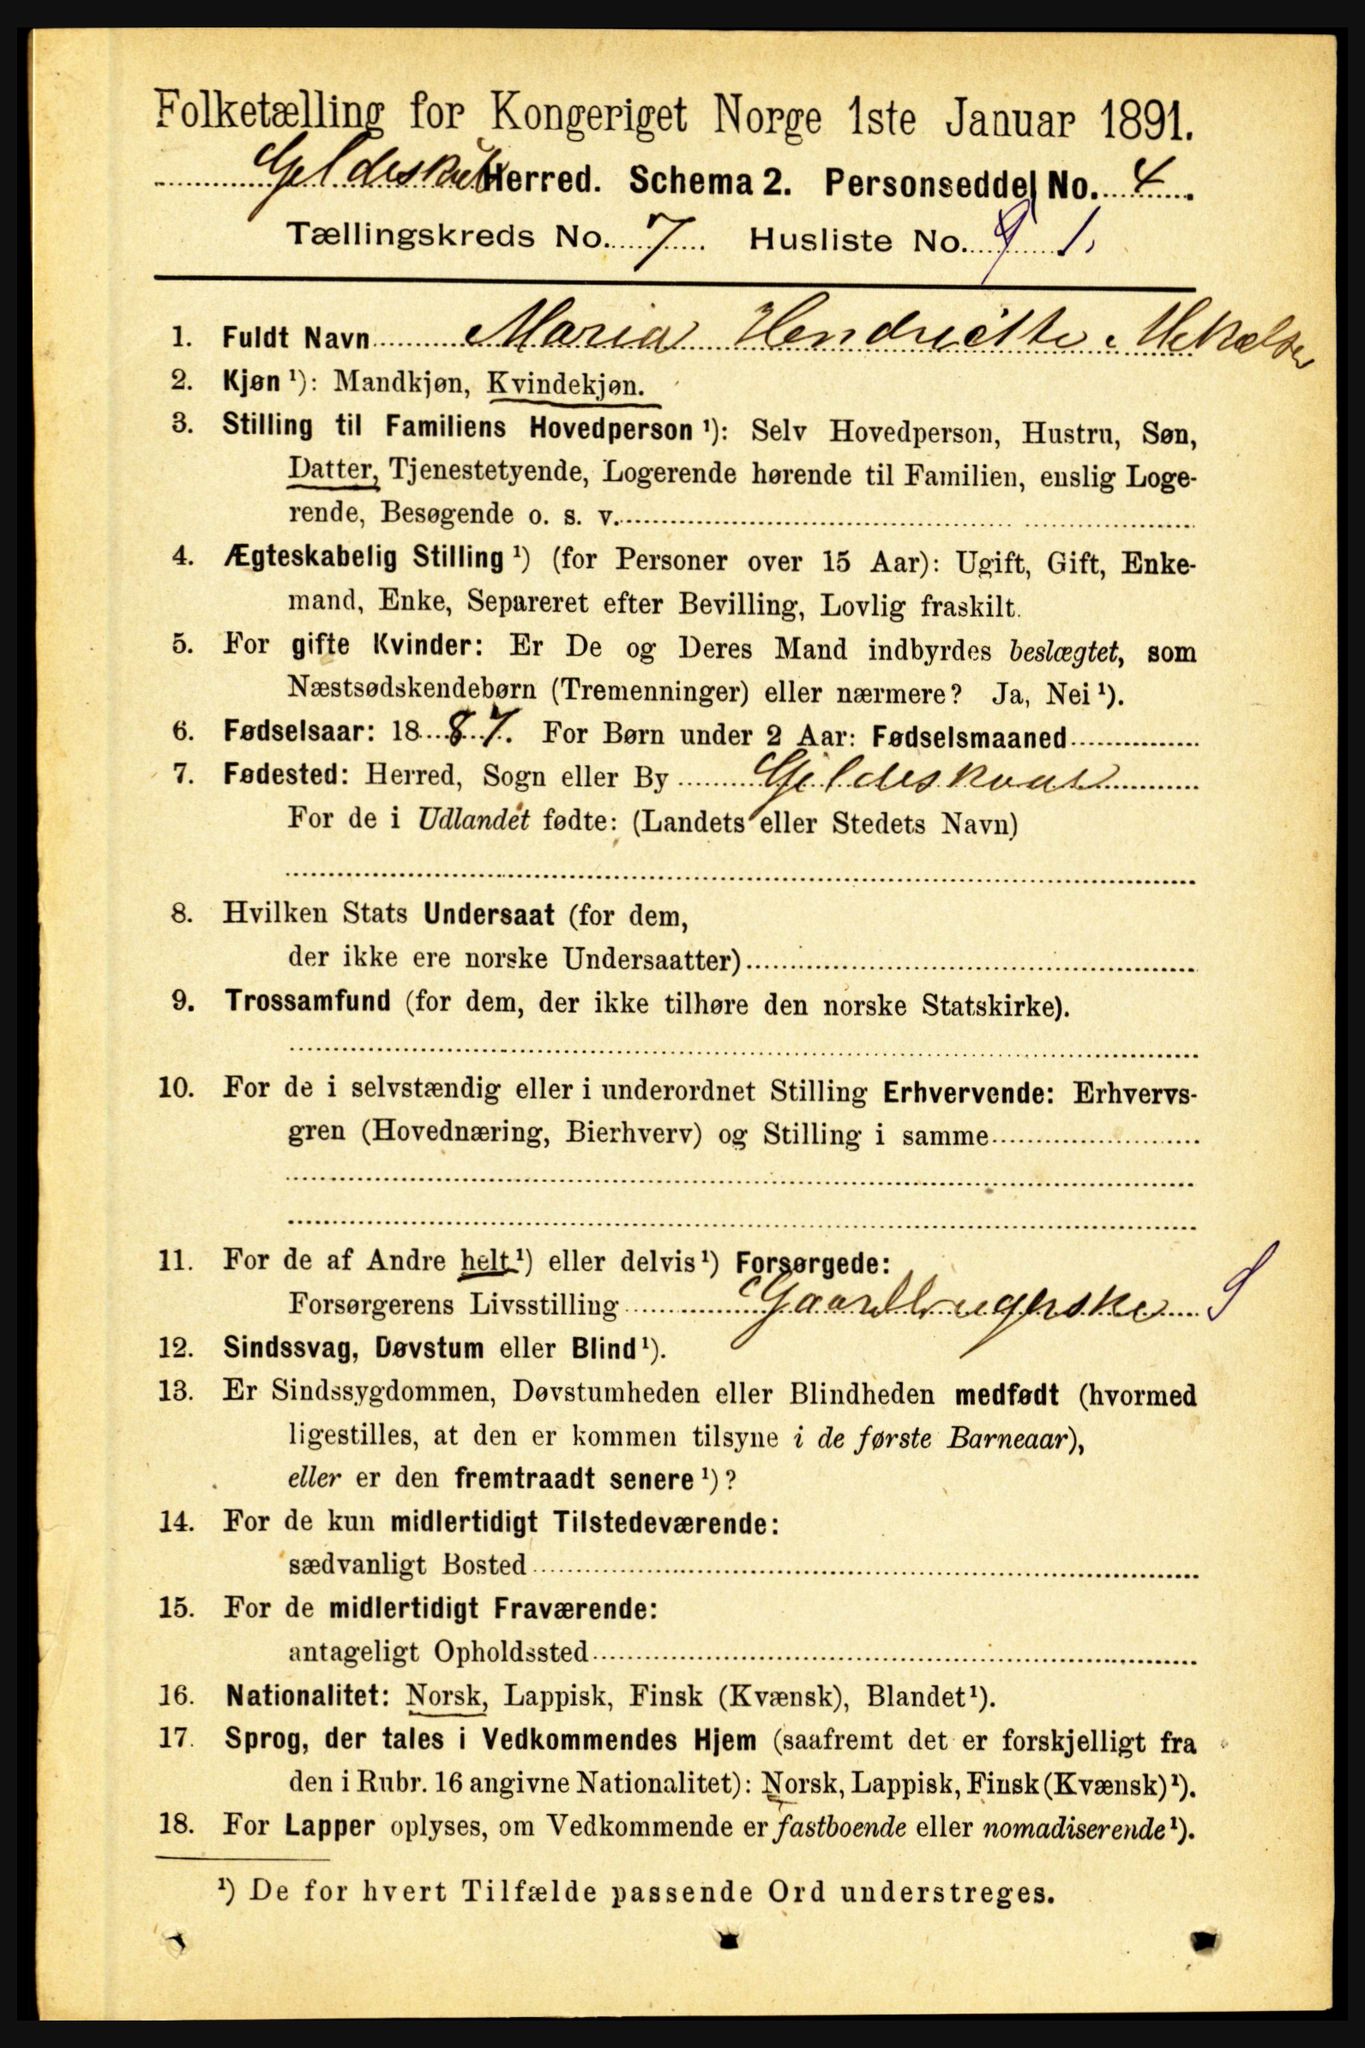 Folketælling for Kongeriget Norge 1ste Januar 1891.
Gildeskål Herred. Schema 2. Personseddel No. 4.
Tællingskreds No. 7 Husliste No. 9 1.
1. Fuldt Navn Maria Hendriette Mikalsen
2. Kjøn ¹): Mandkjøn, Kvindekjøn.
3. Stilling til Familiens Hovedperson ¹): Selv Hovedperson, Hustru, Søn,
Datter, Tjenestetyende, Logerende hørende til Familien, enslig Loge-
rende, Besøgende o. s. v.
4. Ægteskabelig Stilling ¹) (for Personer over 15 Aar): Ugift, Gift, Enke-
mand, Enke, Separeret efter Bevilling, Lovlig fraskilt.
5. For gifte Kvinder: Er De og Deres Mand indbyrdes beslægtet, som
Næstsødskendebørn (Tremenninger) eller nærmere? Ja, Nei ¹).
6. Fødselsaar: 1887. For Børn under 2 Aar: Fødselsmaaned
7. Fødested: Herred, Sogn eller By Gildeskaal
For de i Udlandet fødte: (Landets eller Stedets Navn)
8. Hvilken Stats Undersaat (for dem,
der ikke ere norske Undersaatter)
9. Trossamfund (for dem, der ikke tilhøre den norske Statskirke).
10. For de i selvstændig eller i underordnet Stilling Erhvervende: Erhvervs-
gren (Hovednæring, Bierhverv) og Stilling i samme
11. For de af Andre helt ¹) eller delvis ¹) Forsørgede:
Forsørgerens Livsstilling Gaardbrugerske
12. Sindssvag, Døvstum eller Blind ¹).
13. Er Sindssygdommen, Døvstumheden eller Blindheden medfødt (hvormed
ligestilles, at den er kommen tilsyne i de første Barneaar),
eller er den fremtraadt senere ¹)?
14. For de kun midlertidigt Tilstedeværende:
sædvanligt Bosted
15. For de midlertidigt Fraværende:
antageligt Opholdssted
16. Nationalitet: Norsk, Lappisk, Finsk (Kvænsk), Blandet ¹).
17. Sprog, der tales i Vedkommendes Hjem (saafremt det er forskjelligt fra
den i Rubr. 16 angivne Nationalitet): Norsk, Lappisk, Finsk (Kvænsk) ¹).
18. For Lapper oplyses, om Vedkommende er fastboende eller nomadiserende ¹).
¹) De for hvert Tilfælde passende Ord understreges.